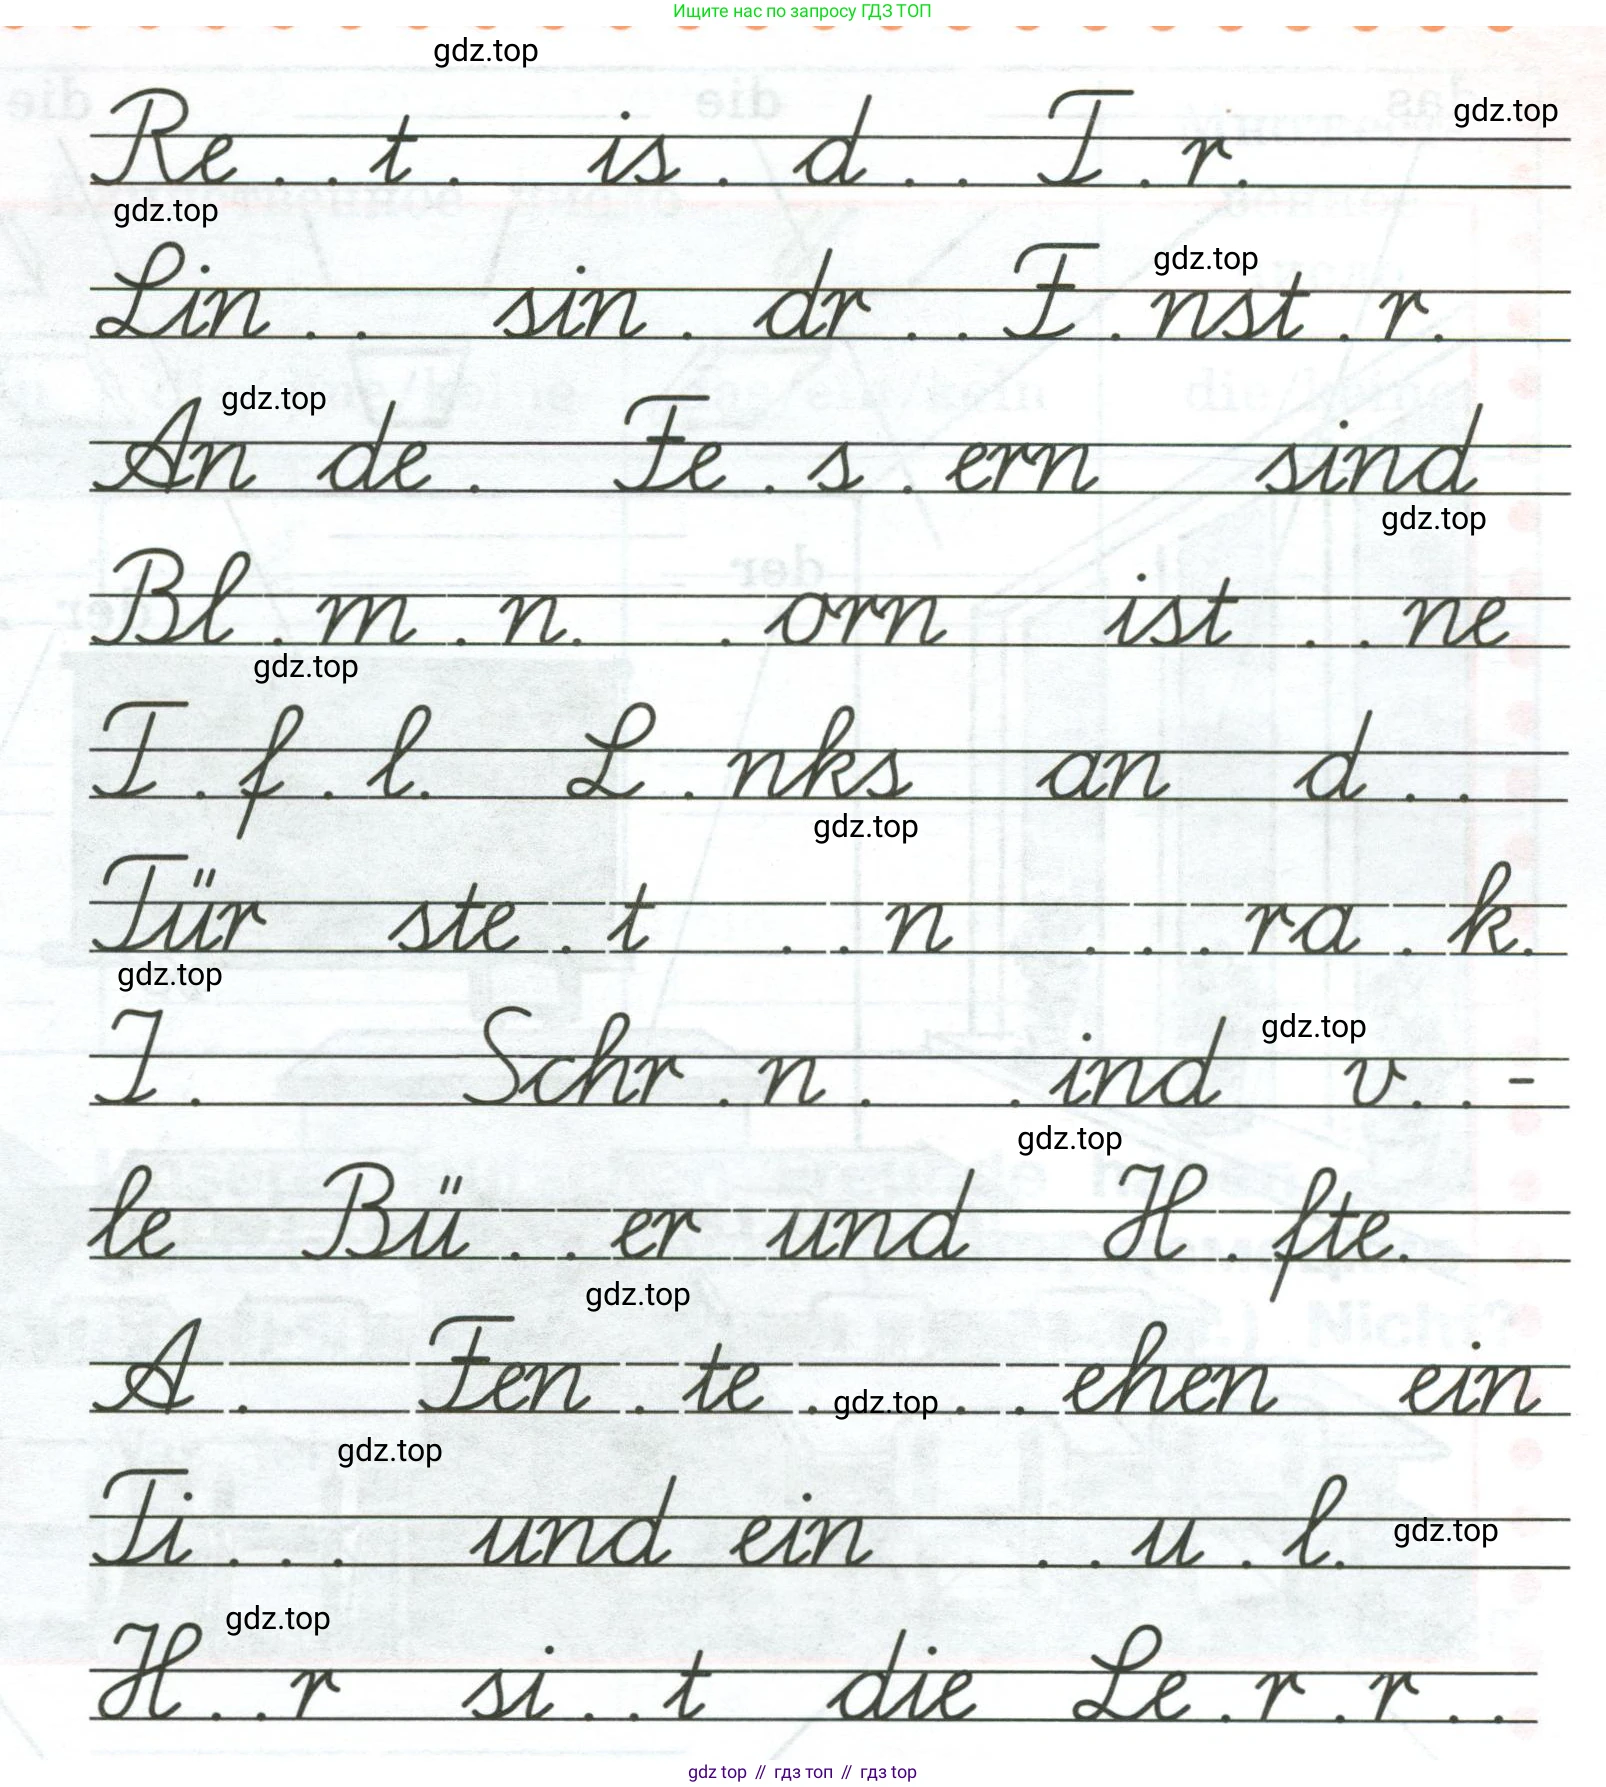 Ищите нас по запросу ГДЗ ТОП
gdz.top
Re . . t . is . d . . T . r.
gdz.top
gdz.top
Lin . . sin . dr . . F . nst . r.
gdz.top
An de . Fe . s . ern sind
gdz.top
gdz.top
Bl . m . n. . orn ist . . ne
gdz.top
T . f . l. L . nks an d . .
gdz.top
Tür ste . t . . n . . . ra . k.
gdz.top
I . Schr . n . . ind v . . -
gdz.top
gdz.top
le Bü . . er und H . fte.
gdz.top
A . Fen . te . . . ehen ein
gdz.top
gdz.top
Ti . . . und ein . . u . l.
gdz.top
H . . r si . . t die Le . r . r . .
gdz.top
gdz top // гдз топ // гдз top